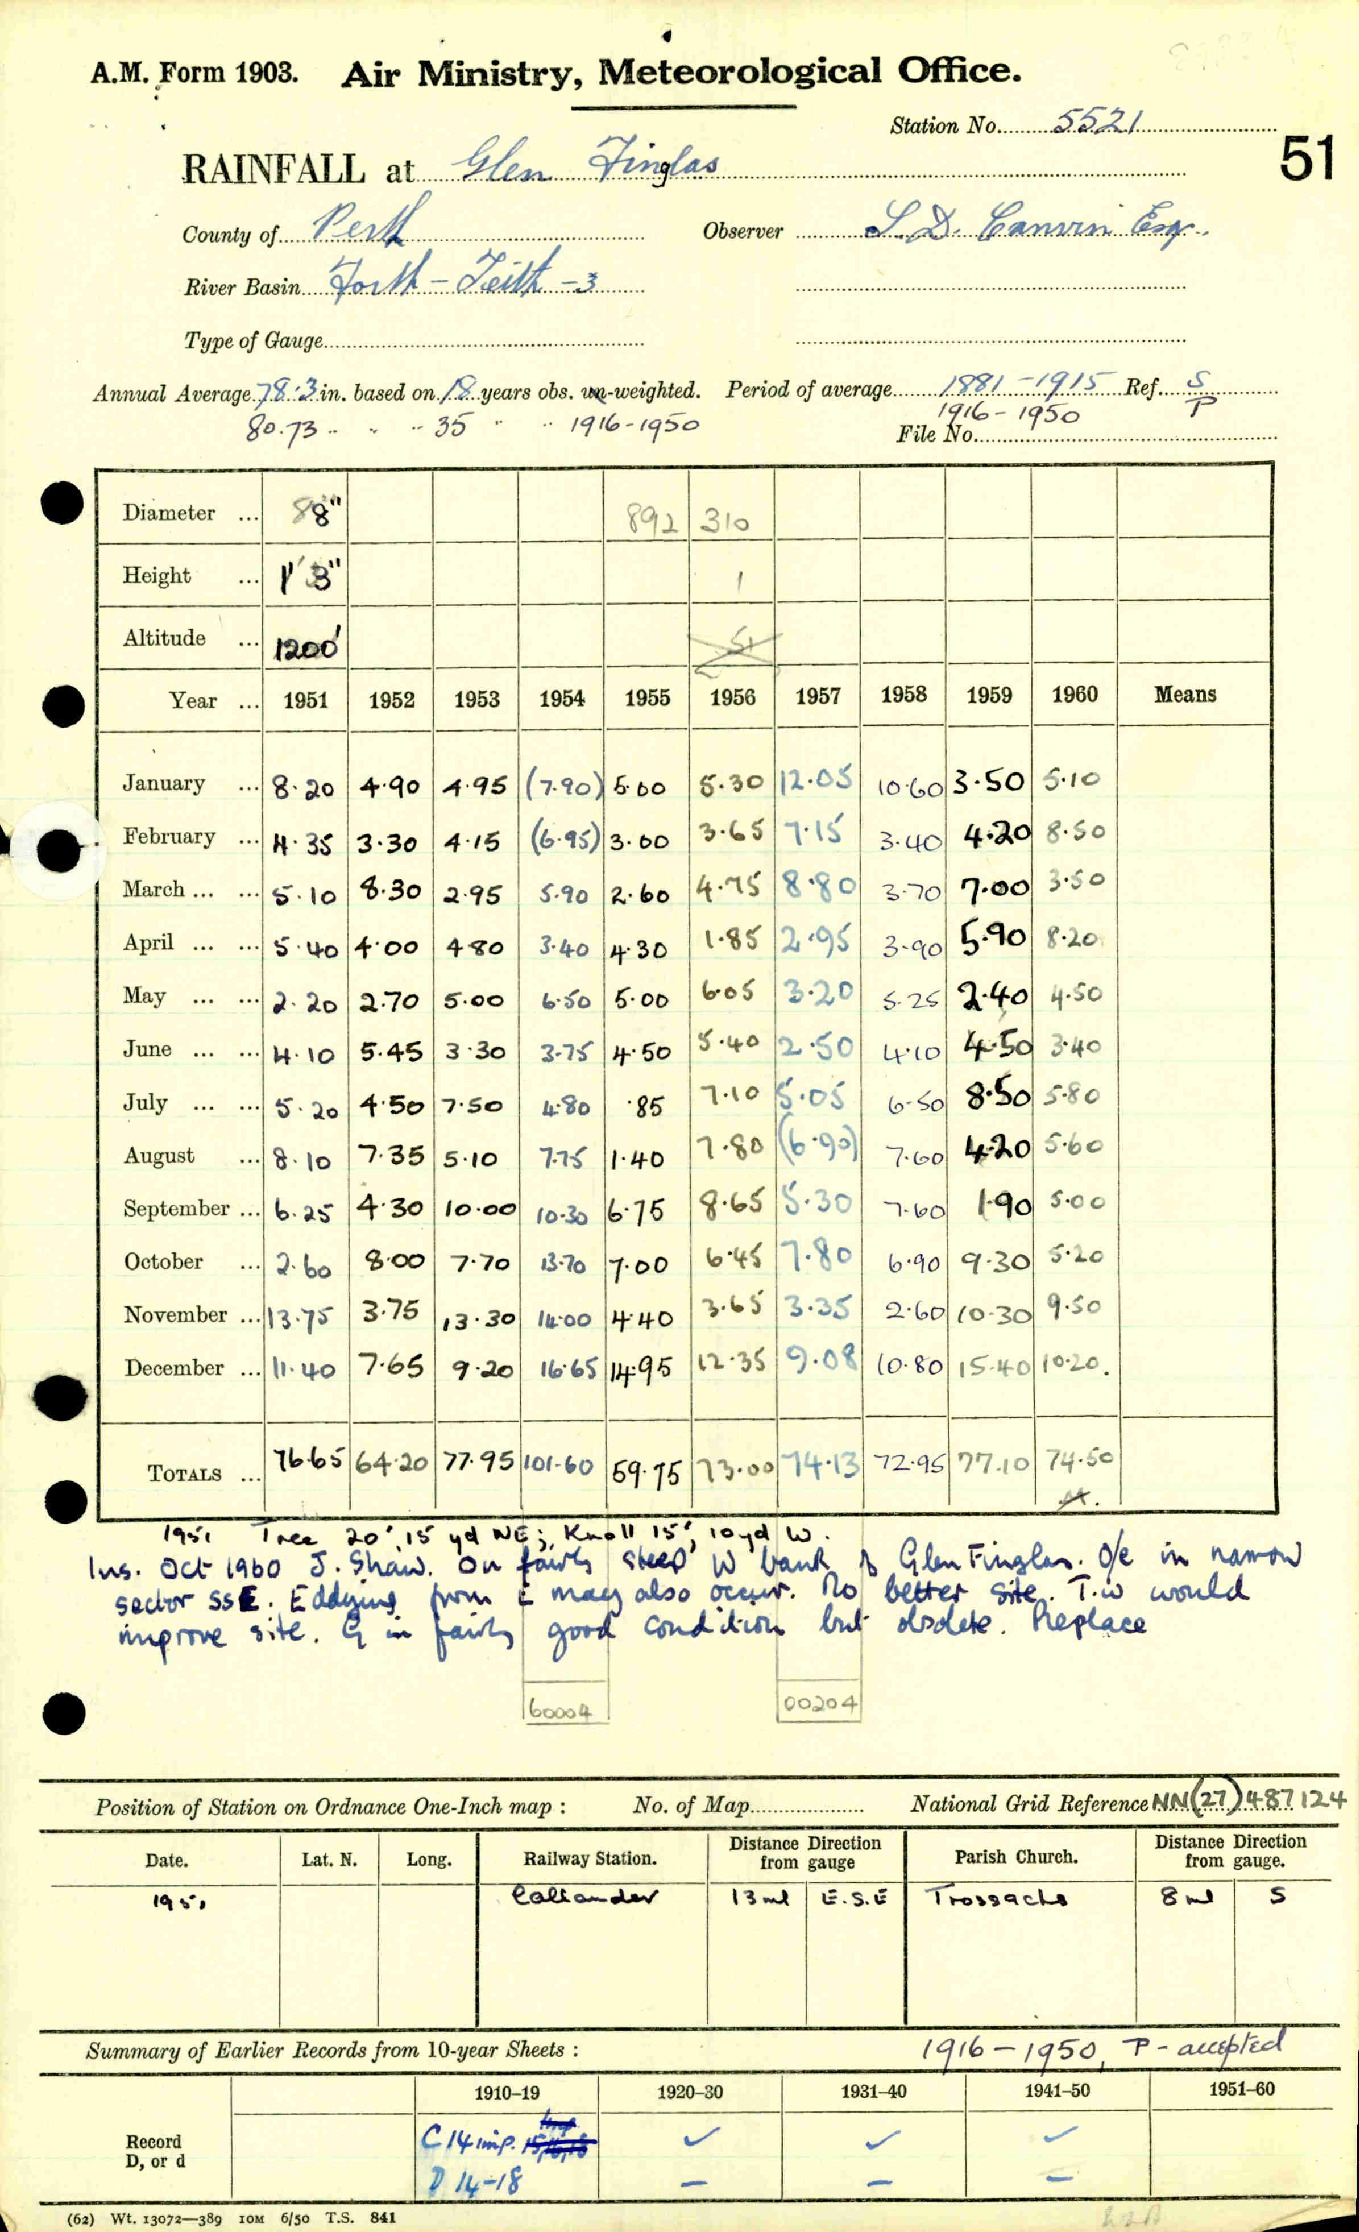 A.M. Form 1903. Air Ministry, Meteorological Office.
Station No. 5521
51
RAINFALL at Glen Finglas
County of Perth Observer S. D. Canvin Esq.
River Basin Forth - Teith - 3
Type of Gauge
Annual Average 78.3 in. based on 18 years obs. un-weighted. Period of average 1881-1915 Ref. S
80.73 " " " 35 " " 1916-1950 1916-1950 P
File No.
Diameter ... 8" 892 310
Height ... 1' 3" 1
Altitude ... 1200' 51
Year ... 1951 1952 1953 1954 1955 1956 1957 1958 1959 1960 Means
January ... 8.20 4.90 4.95 (7.90) 5.00 5.30 12.05 10.60 3.50 5.10
February ... 4.35 3.30 4.15 (6.95) 3.00 3.65 7.15 3.40 4.20 8.50
March ... ... 5.10 8.30 2.95 5.90 2.60 4.75 8.80 3.70 7.00 3.50
April ... ... 5.40 4.00 4.80 3.40 4.30 1.85 2.95 3.90 5.90 8.20
May ... ... 2.20 2.70 5.00 6.50 5.00 6.05 3.20 5.25 2.40 4.50
June ... ... 4.10 5.45 3.30 3.75 4.50 5.40 2.50 4.10 4.50 3.40
July ... ... 5.20 4.50 7.50 4.80 .85 7.10 5.05 6.50 8.50 5.80
August ... 8.10 7.35 5.10 7.75 1.40 7.80 (6.90) 7.60 4.20 5.60
September ... 6.25 4.30 10.00 10.30 6.75 8.65 5.30 7.60 1.90 5.00
October ... 2.60 8.00 7.70 13.70 7.00 6.45 7.80 6.90 9.30 5.20
November ... 13.75 3.75 13.30 14.00 4.40 3.65 3.35 2.60 10.30 9.50
December ... 11.40 7.65 9.20 16.65 14.95 12.35 9.08 10.80 15.40 10.20
TOTALS ... 76.65 64.20 77.95 101.60 59.75 73.00 74.13 72.95 77.10 74.50
1951 Tree 20', 15 yd NE; Knoll 15', 10yd W.
Ins. Oct 1960 J. Shaw. On fairly steep W bank of Glen Finglas. O/e in narrow
sector SSE. Eddying from E may also occur. No better site. T.W would
improve site. G in fairly good condition but obsolete. Replace
60004 00204
Position of Station on Ordnance One-Inch map : No. of Map National Grid Reference NN(27)487124
Date. Lat. N. Long. Railway Station. Distance Direction from gauge Parish Church. Distance Direction from gauge.
1951 Callander 13 ml E.S.E Trossachs 8 ml S
Summary of Earlier Records from 10-year Sheets : 1916-1950, P - accepted
1910–19 1920–30 1931–40 1941–50 1951–60
Record C 14 imp. 15,16,18 ✓ ✓ ✓
D, or d D 14-18 – – –
(62) Wt. 13072—389 10M 6/50 T.S. 841